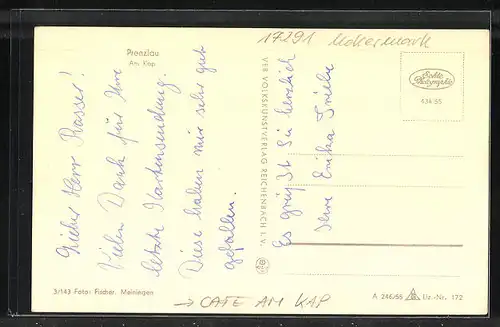 Prenzlau
Am Kap
17291 Uckermark
Lieber Herr Rasser!
Vielen Dank für Ihre
letzte Kartensendung.
Diese haben mir sehr gut
gefallen.
Es grüßt Sie herzlich
Ihre Erika
VEB VOLKSKUNSTVERLAG REICHENBACH I. V.
Echte
Photographie
434/55
3/143 Foto: Fischer, Meiningen
→ CAFE AM KAP
A 246/55 Liz.-Nr. 172